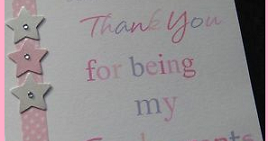 Thank You
for being
my